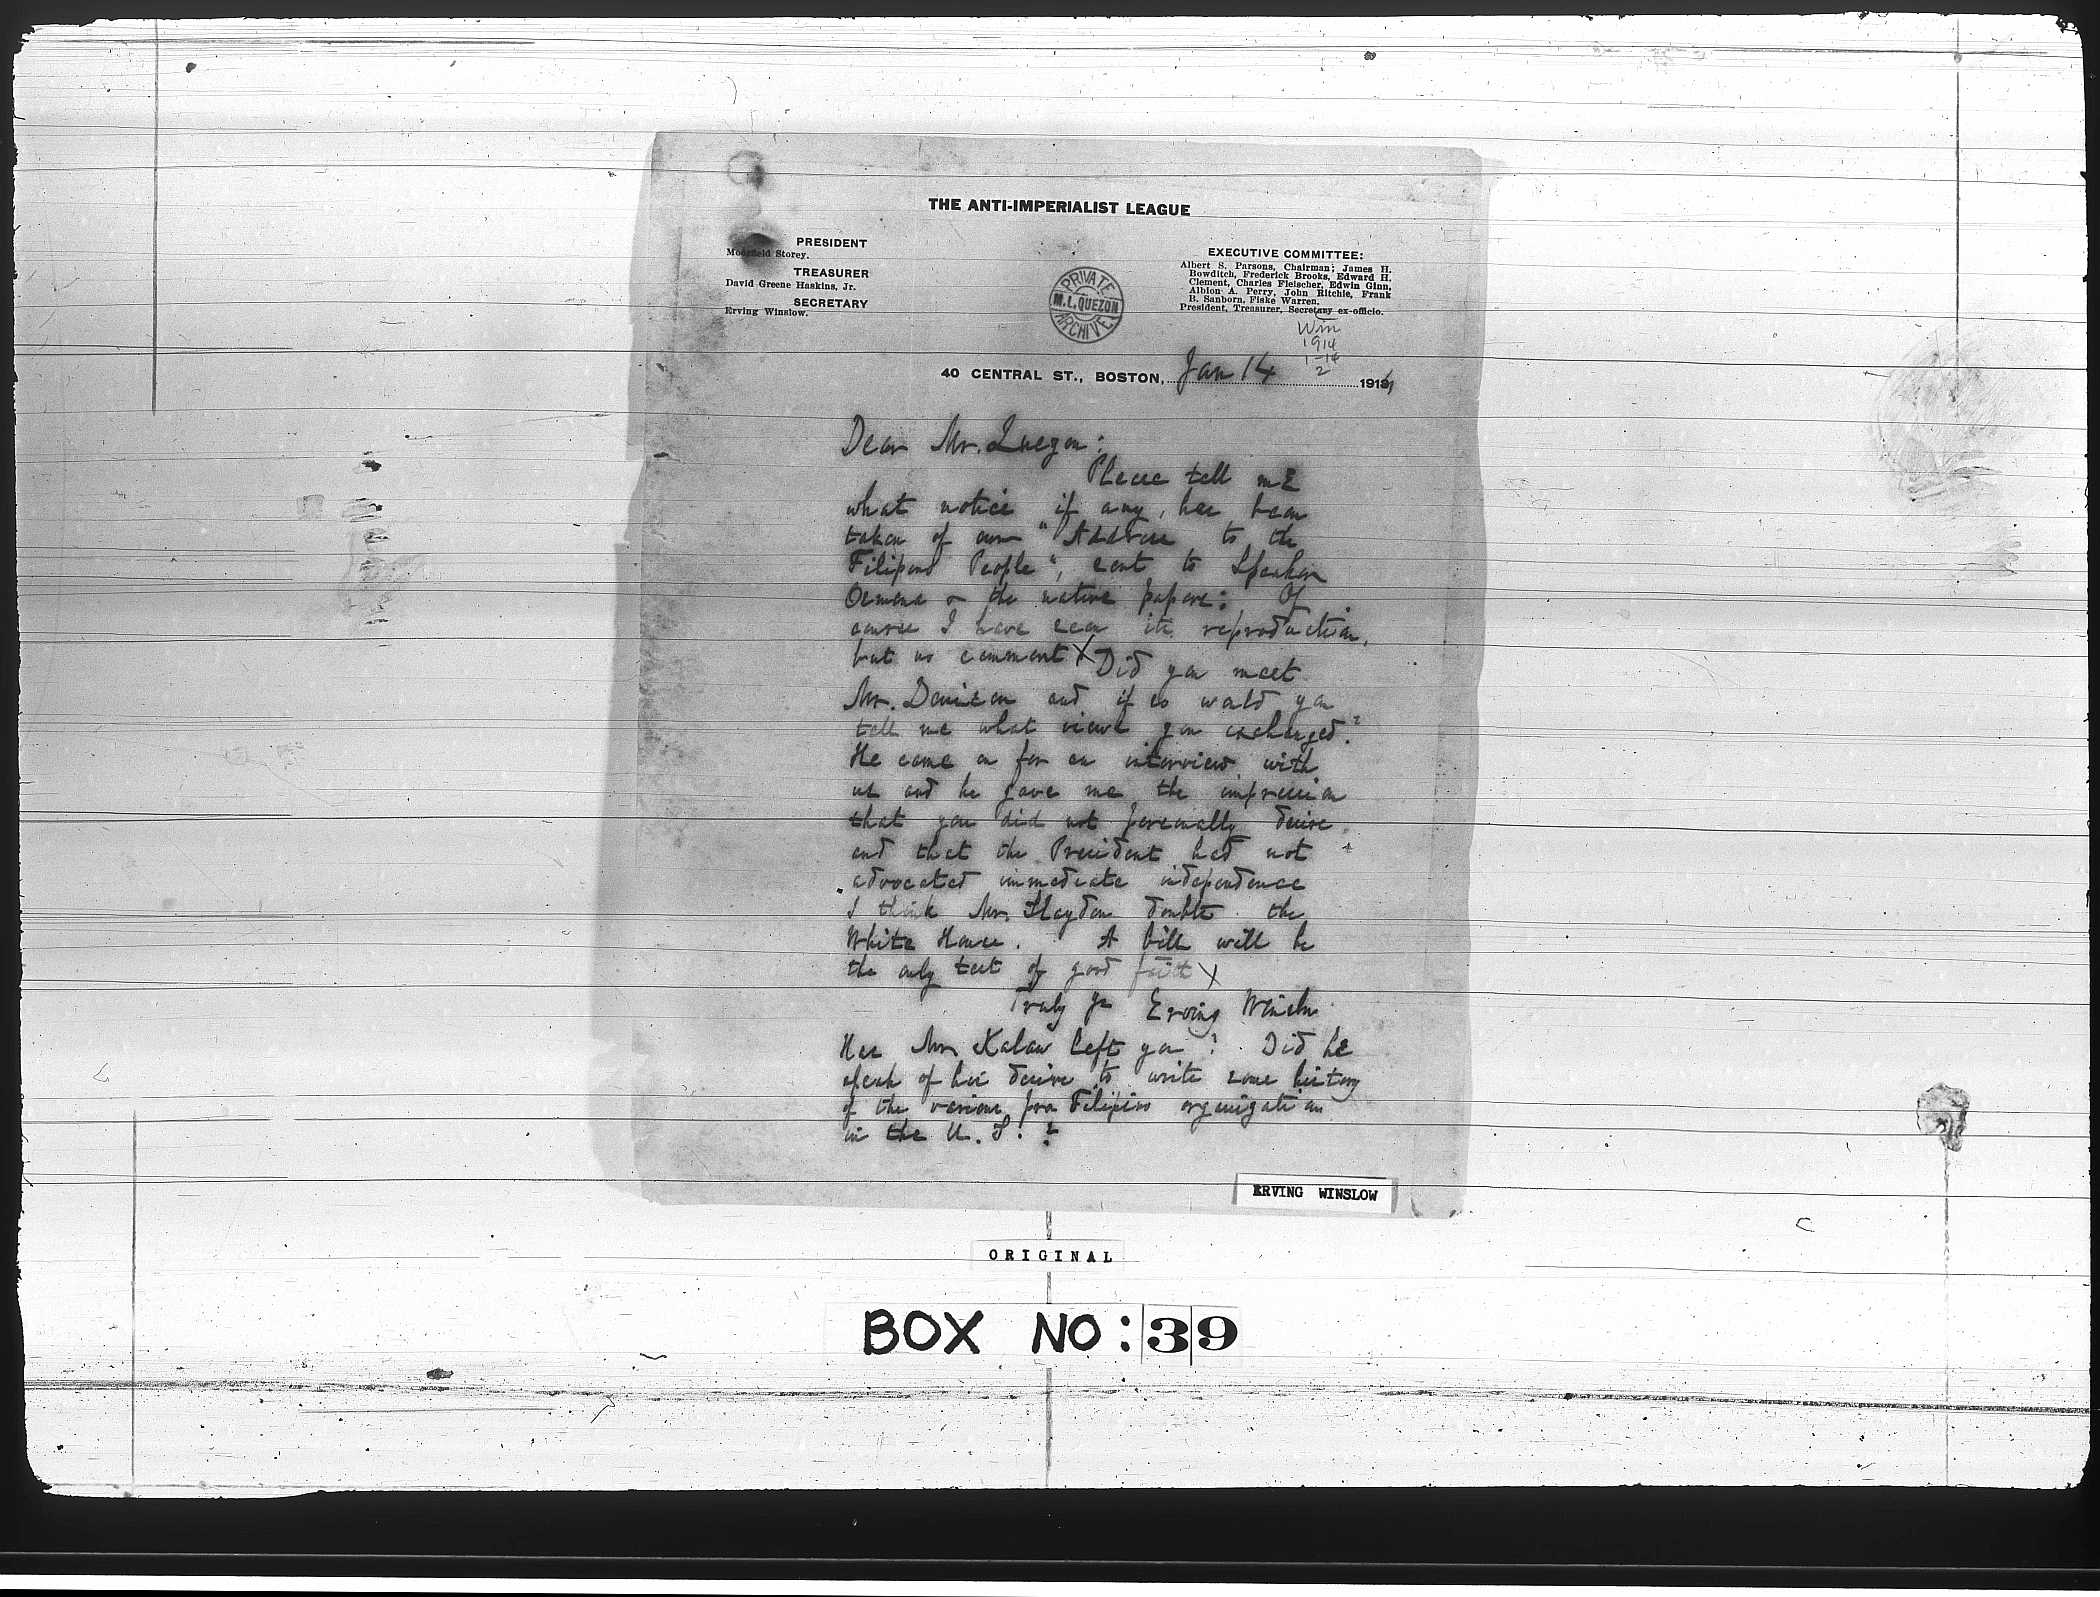 THE ANTI-IMPERIALIST LEAGUE
PRESIDENT
Moorfield Storey.
TREASURER
David Greene Haskins, Jr.
SECRETARY
Erving Winslow.
PRIVATE
M. L. QUEZON
ARCHIVE
EXECUTIVE COMMITTEE:
Albert S. Parsons, Chairman; James H.
Bowditch, Frederick Brooks, Edward H.
Clement, Charles Fleischer, Edwin Ginn,
Albion A. Perry, John Ritchie, Frank
B. Sanborn, Fiske Warren.
President, Treasurer, Secretary ex-officio.
Win
1914
1-14
2
40 CENTRAL ST., BOSTON, Jan 14 1914
Dear Mr. Quezon:
Please tell me
what notice if any, has been
taken of our "Address to the
Filipino People", sent to Speaker
Osmena & the native papers: Of
course I have seen its reproduction,
but no comment X Did you meet
Mr. Denison and if so would you
tell me what views you exchanged?
He came on for an interview with
us and he gave me the impression
that you did not personally desire
and that the President had not
advocated immediate independence
I think Mr. Slayden doubts the
White House. A bill will be
the only test of good faith X
Truly yrs Erving Winslow
Has Mr Kalaw left you? Did he
speak of his desire to write some history
of the various pro Filipino organization
in the U. S.?
ERVING WINSLOW
ORIGINAL
BOX NO: 39